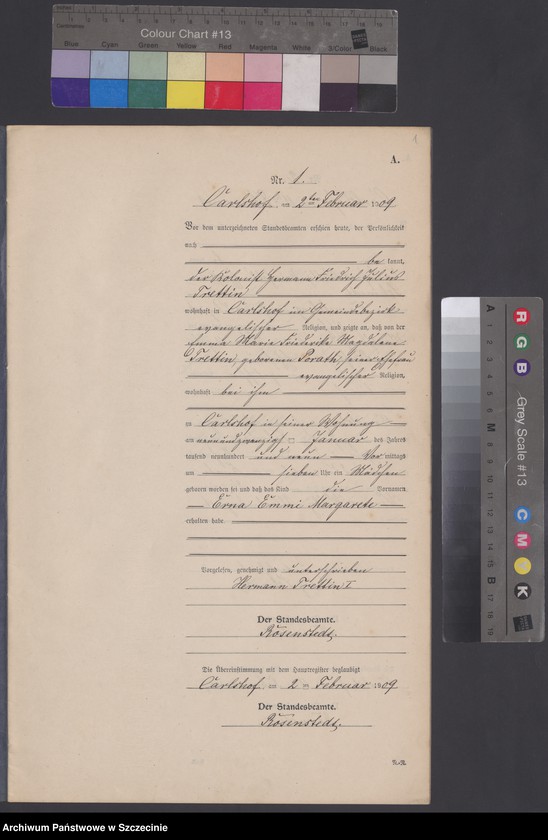 Colour Chart #13
Blue Cyan Green Yellow Red Magenta White 3/Color Black
A.
Nr. 1.
Carlshof am 2ten Februar 1909
Vor dem unterzeichneten Standesbeamten erschien heute, der Persönlichkeit
nach
be kannt,
der Kolonist Hermann Friedrich Julius
Trettin
wohnhaft in Carlshof im Gemeindebezirk
evangelischer Religion, und zeigte an, daß von der
Emma Marie Friederike Magdalene
Trettin, geborenen Porath, seiner Ehefrau
evangelischer Religion,
wohnhaft bei ihm
zu Carlshof in seiner Wohnung
am neunundzwanzigsten Januar des Jahres
tausend neunhundert und neun Vor mittags
um sieben Uhr ein Mädchen
geboren worden sei und daß das Kind die Vornamen
Erna Emmi Margarete
erhalten habe.
Vorgelesen, genehmigt und unterschrieben
Hermann Trettin I
Der Standesbeamte.
Rosenstedt.
Die Übereinstimmung mit dem Hauptregister beglaubigt
Carlshof am 2 ten Februar 1909
Der Standesbeamte.
Rosenstedt.
Grey Scale #13
A 1 2 3 4 5 6 M 8 9 10 11 12 13 14 15 B 17 18 19
R G B C M Y K
Archiwum Państwowe w Szczecinie